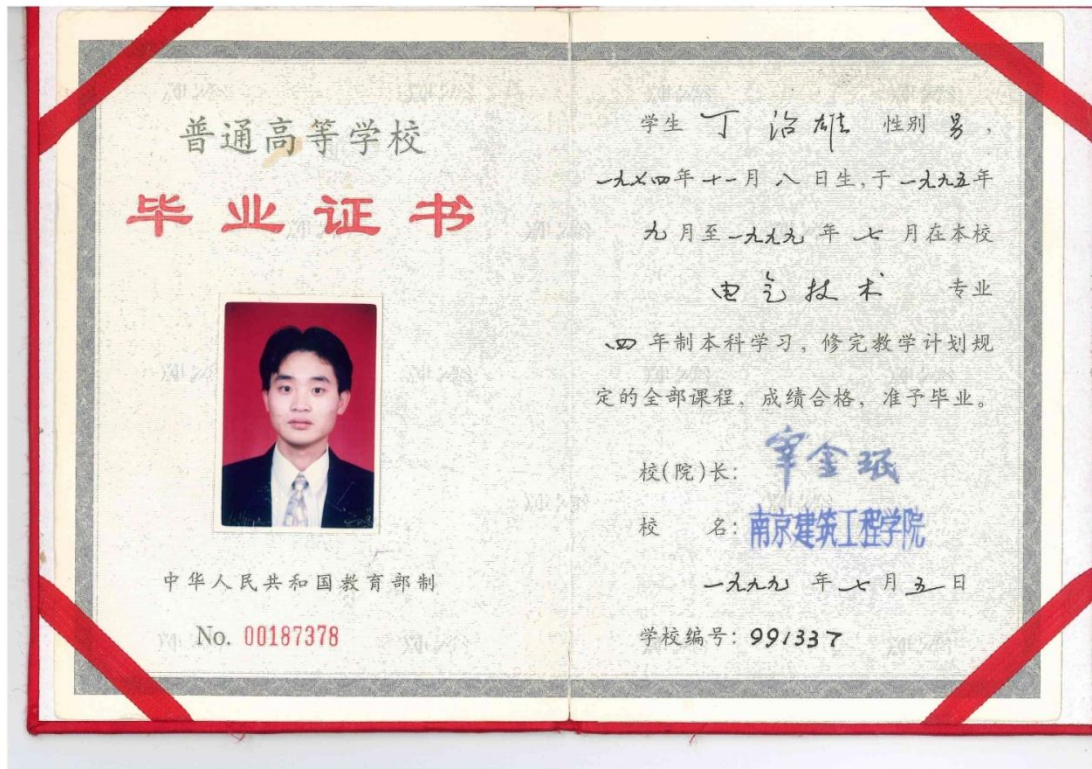 普通高等学校
毕业证书
中华人民共和国教育部制
No. 00187378
学生 丁治雄 性别 男，
一九七四年十一月八日生，于一九九五年
九月至一九九九年七月在本校
电气技术 专业
四年制本科学习，修完教学计划规
定的全部课程，成绩合格，准予毕业。
校(院)长：宰金珉
校 名：南京建筑工程学院
一九九九年七月五日
学校编号：991337